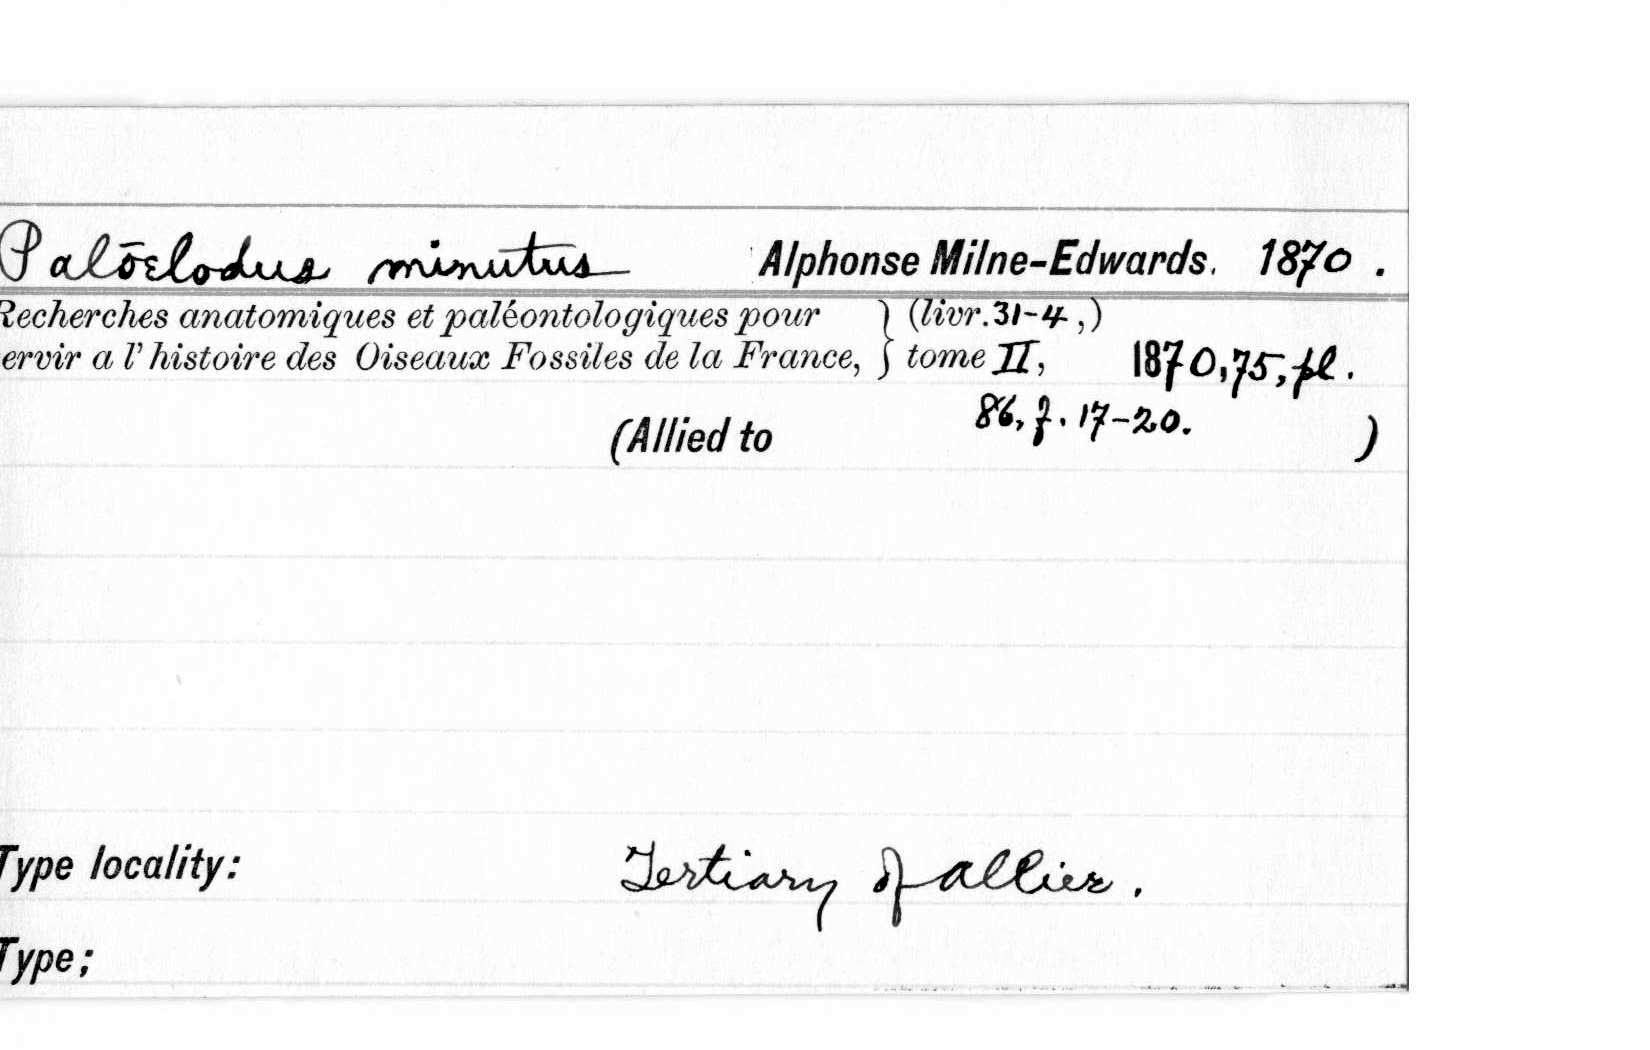 Palōelodus minutus Alphonse Milne-Edwards. 1870.
Recherches anatomiques et paléontologiques pour } (livr. 31-4,)
ervir a l'histoire des Oiseaux Fossiles de la France, } tome II, 1870, 75, pl.
86, f. 17-20.
(Allied to )
Type locality: Tertiary of Allier.
Type;